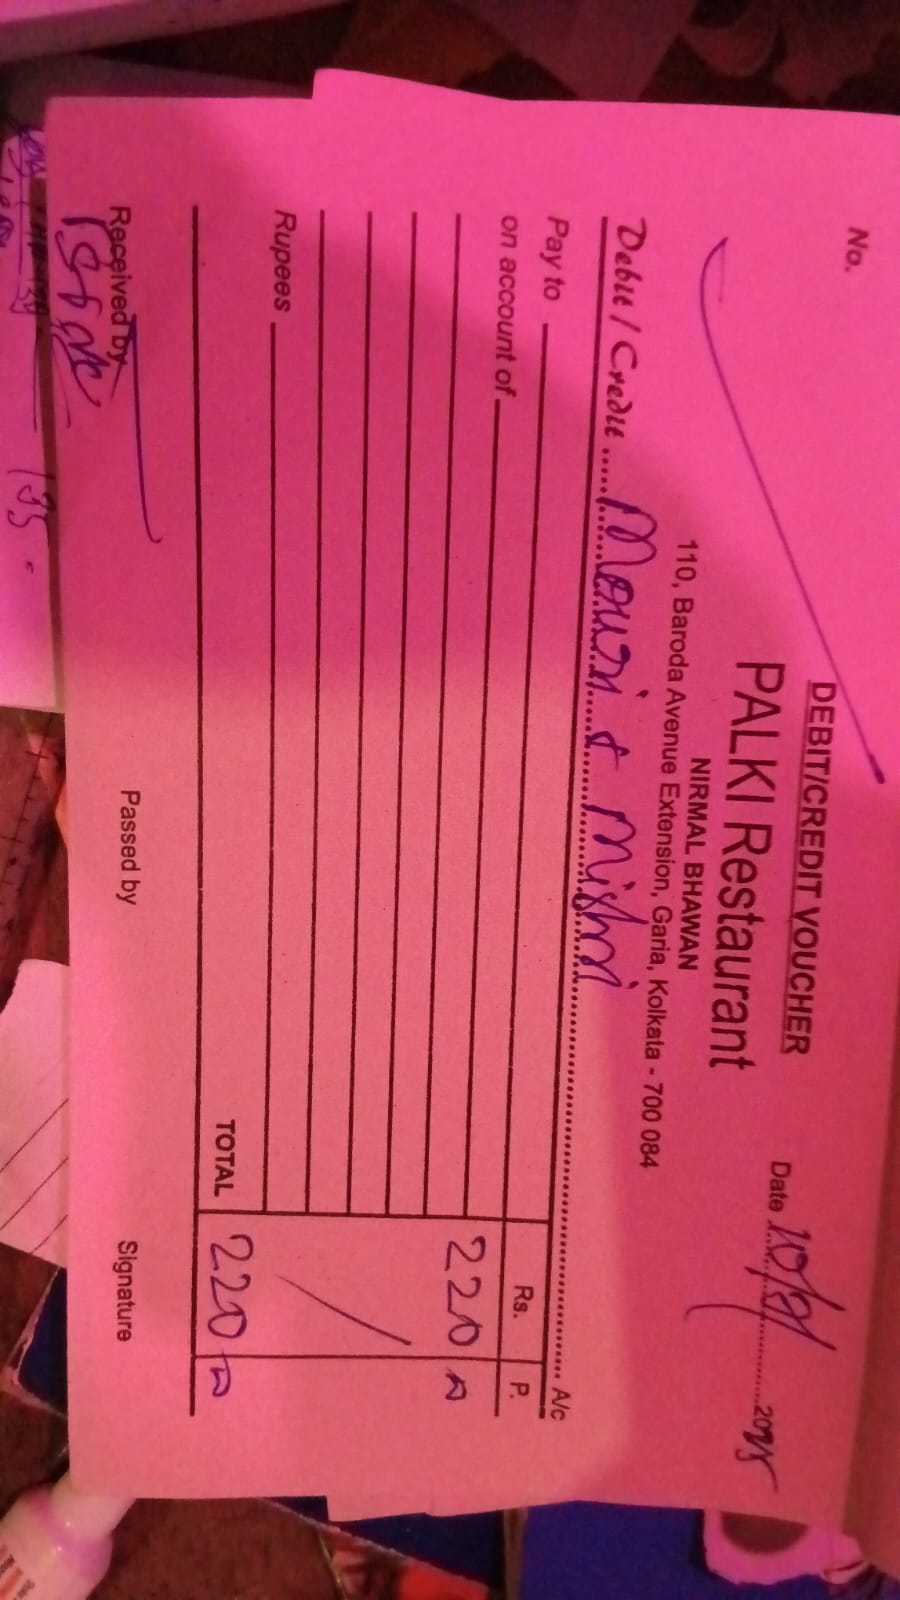 No.
DEBIT/CREDIT VOUCHER
PALKI Restaurant
NIRMAL BHAWAN
110, Baroda Avenue Extension, Garia, Kolkata - 700 084
Date 2025
Debit / Credit Mouri & Mishri A/c
Rs. P.
Pay to
on account of
220
Rupees
TOTAL 220
Received by Passed by Signature
195